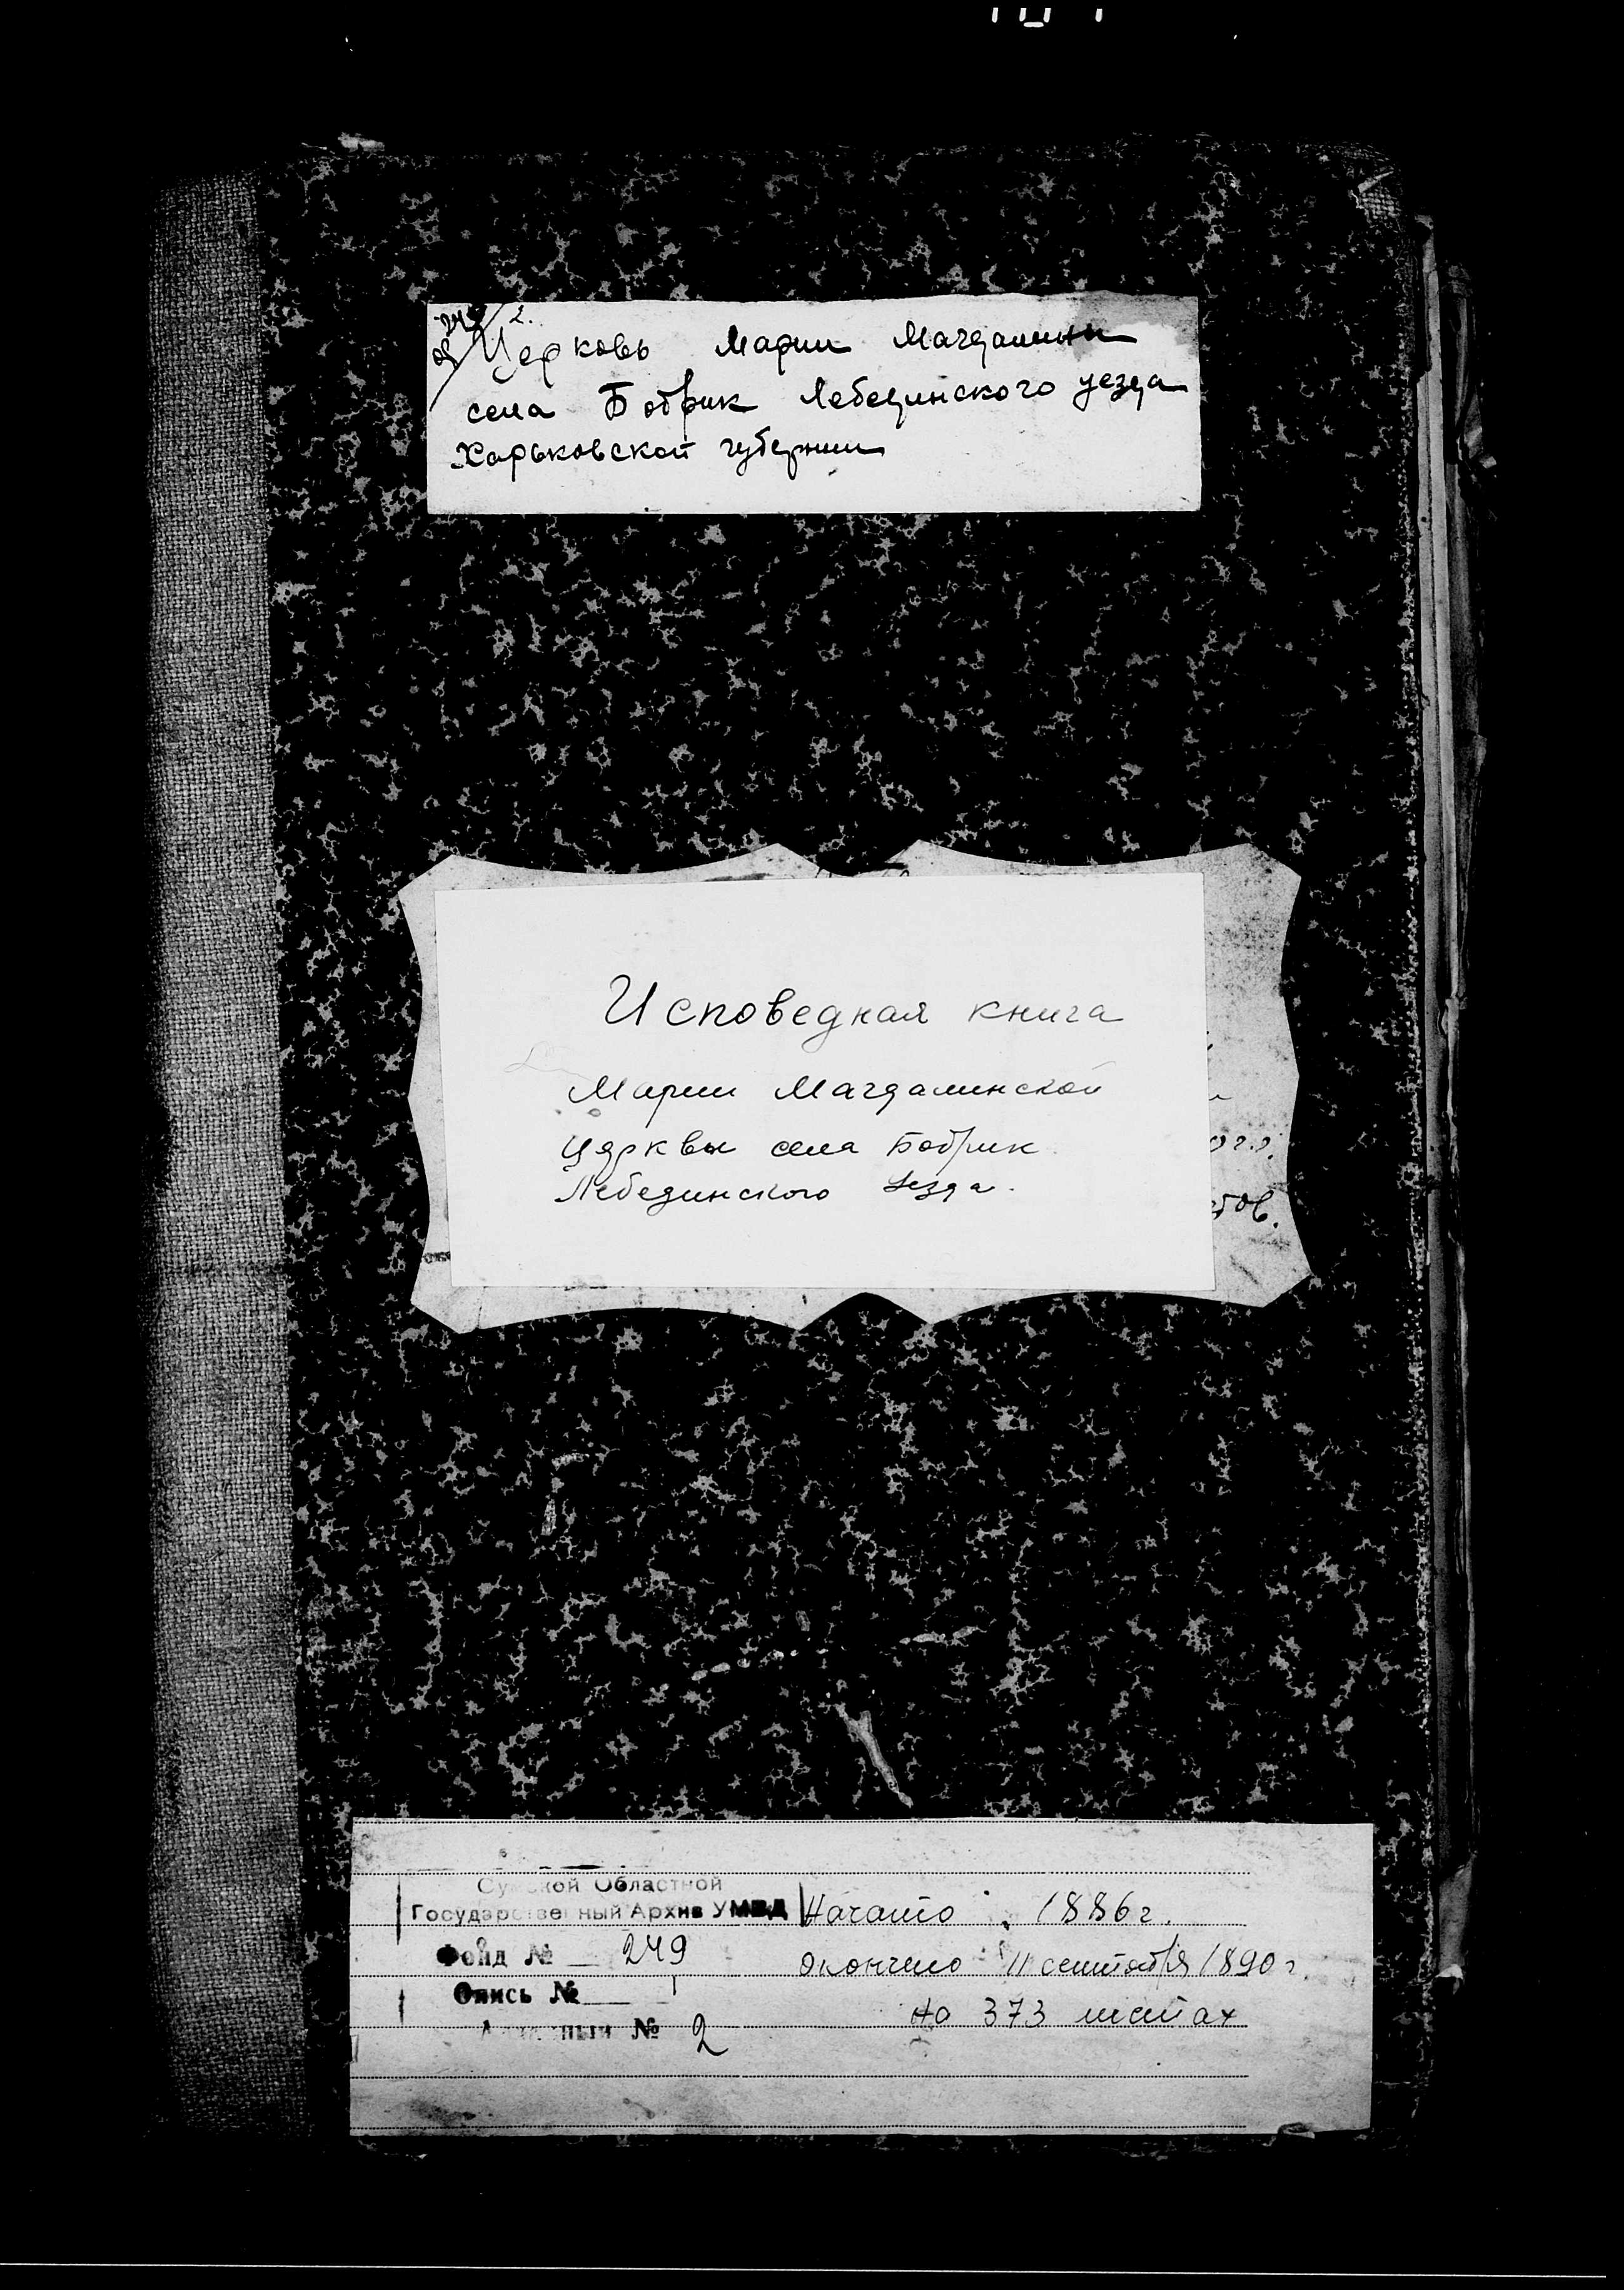 249/2.
Церковь Марии Магдалины
села Бобрик Лебединского уезда
Харьковской губернии
Исповедная книга
Марии Магдалинской
Церквы села Бобрик
Лебединского уезда.
Сумской Областной
Государственный Архив УМВД
Фонд № 249
Опись № 1
№ 2
Начато 1886 г.
Окончено 11 сентября 1890 г.
На 373 листах